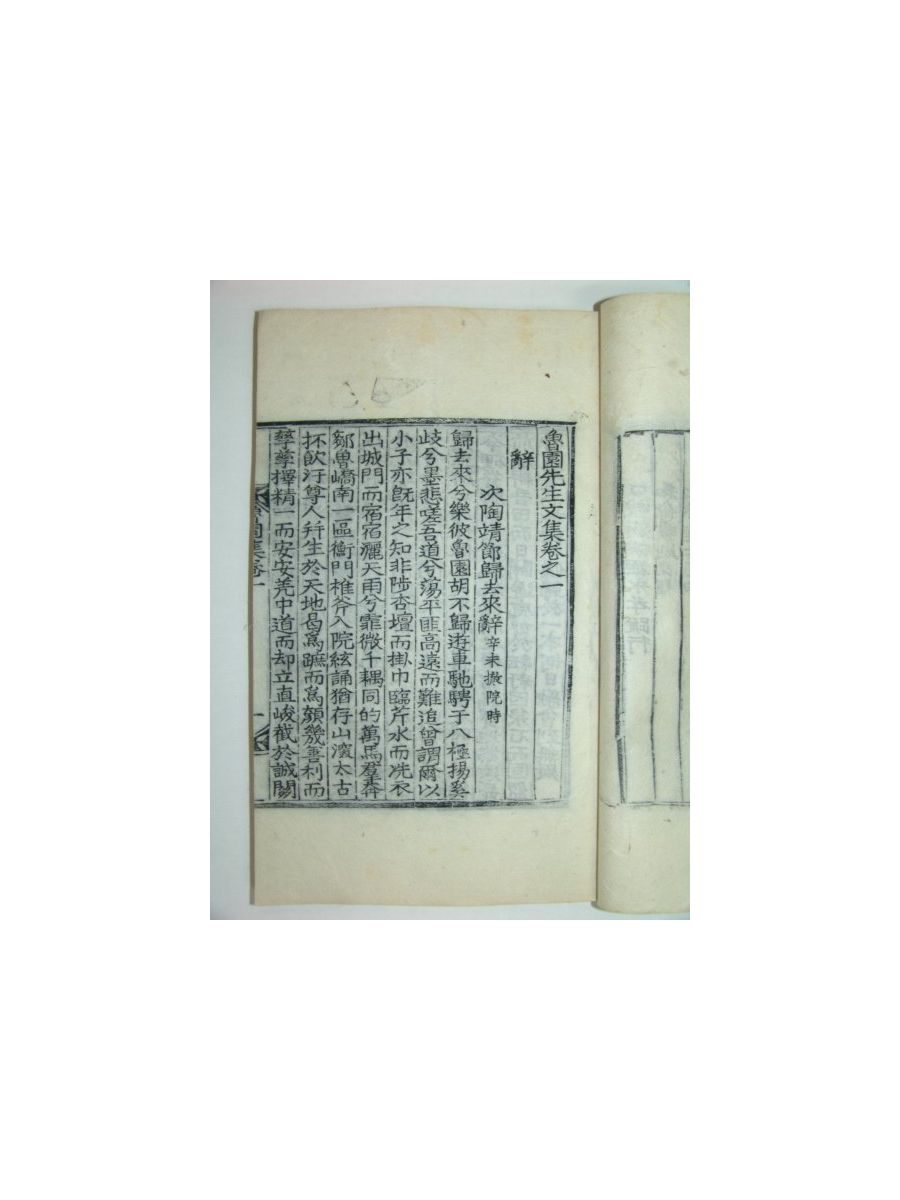 魯園先生文集卷之一
辭
次陶靖節歸去來辭 辛未撤院時
歸去來兮樂彼魯園胡不歸遊車馳騁于八極揚奚
歧兮墨悲嗟吾道兮蕩平匪高遠而難追曾謂爾以
小子亦旣年之知非陟杏壇而掛巾臨芹水而洗衣
出城門而宿宿灑天雨兮霏微千耦同的萬馬羣奔
鄒魯嶠南一區衡門椎斧入院絃誦猶存山濱太古
抔飮汙尊人幷生於天地曷爲蹠而爲顔幾善利而
孶孶擇精一而安安羌中道而却立直峻截於誠關
園集卷一